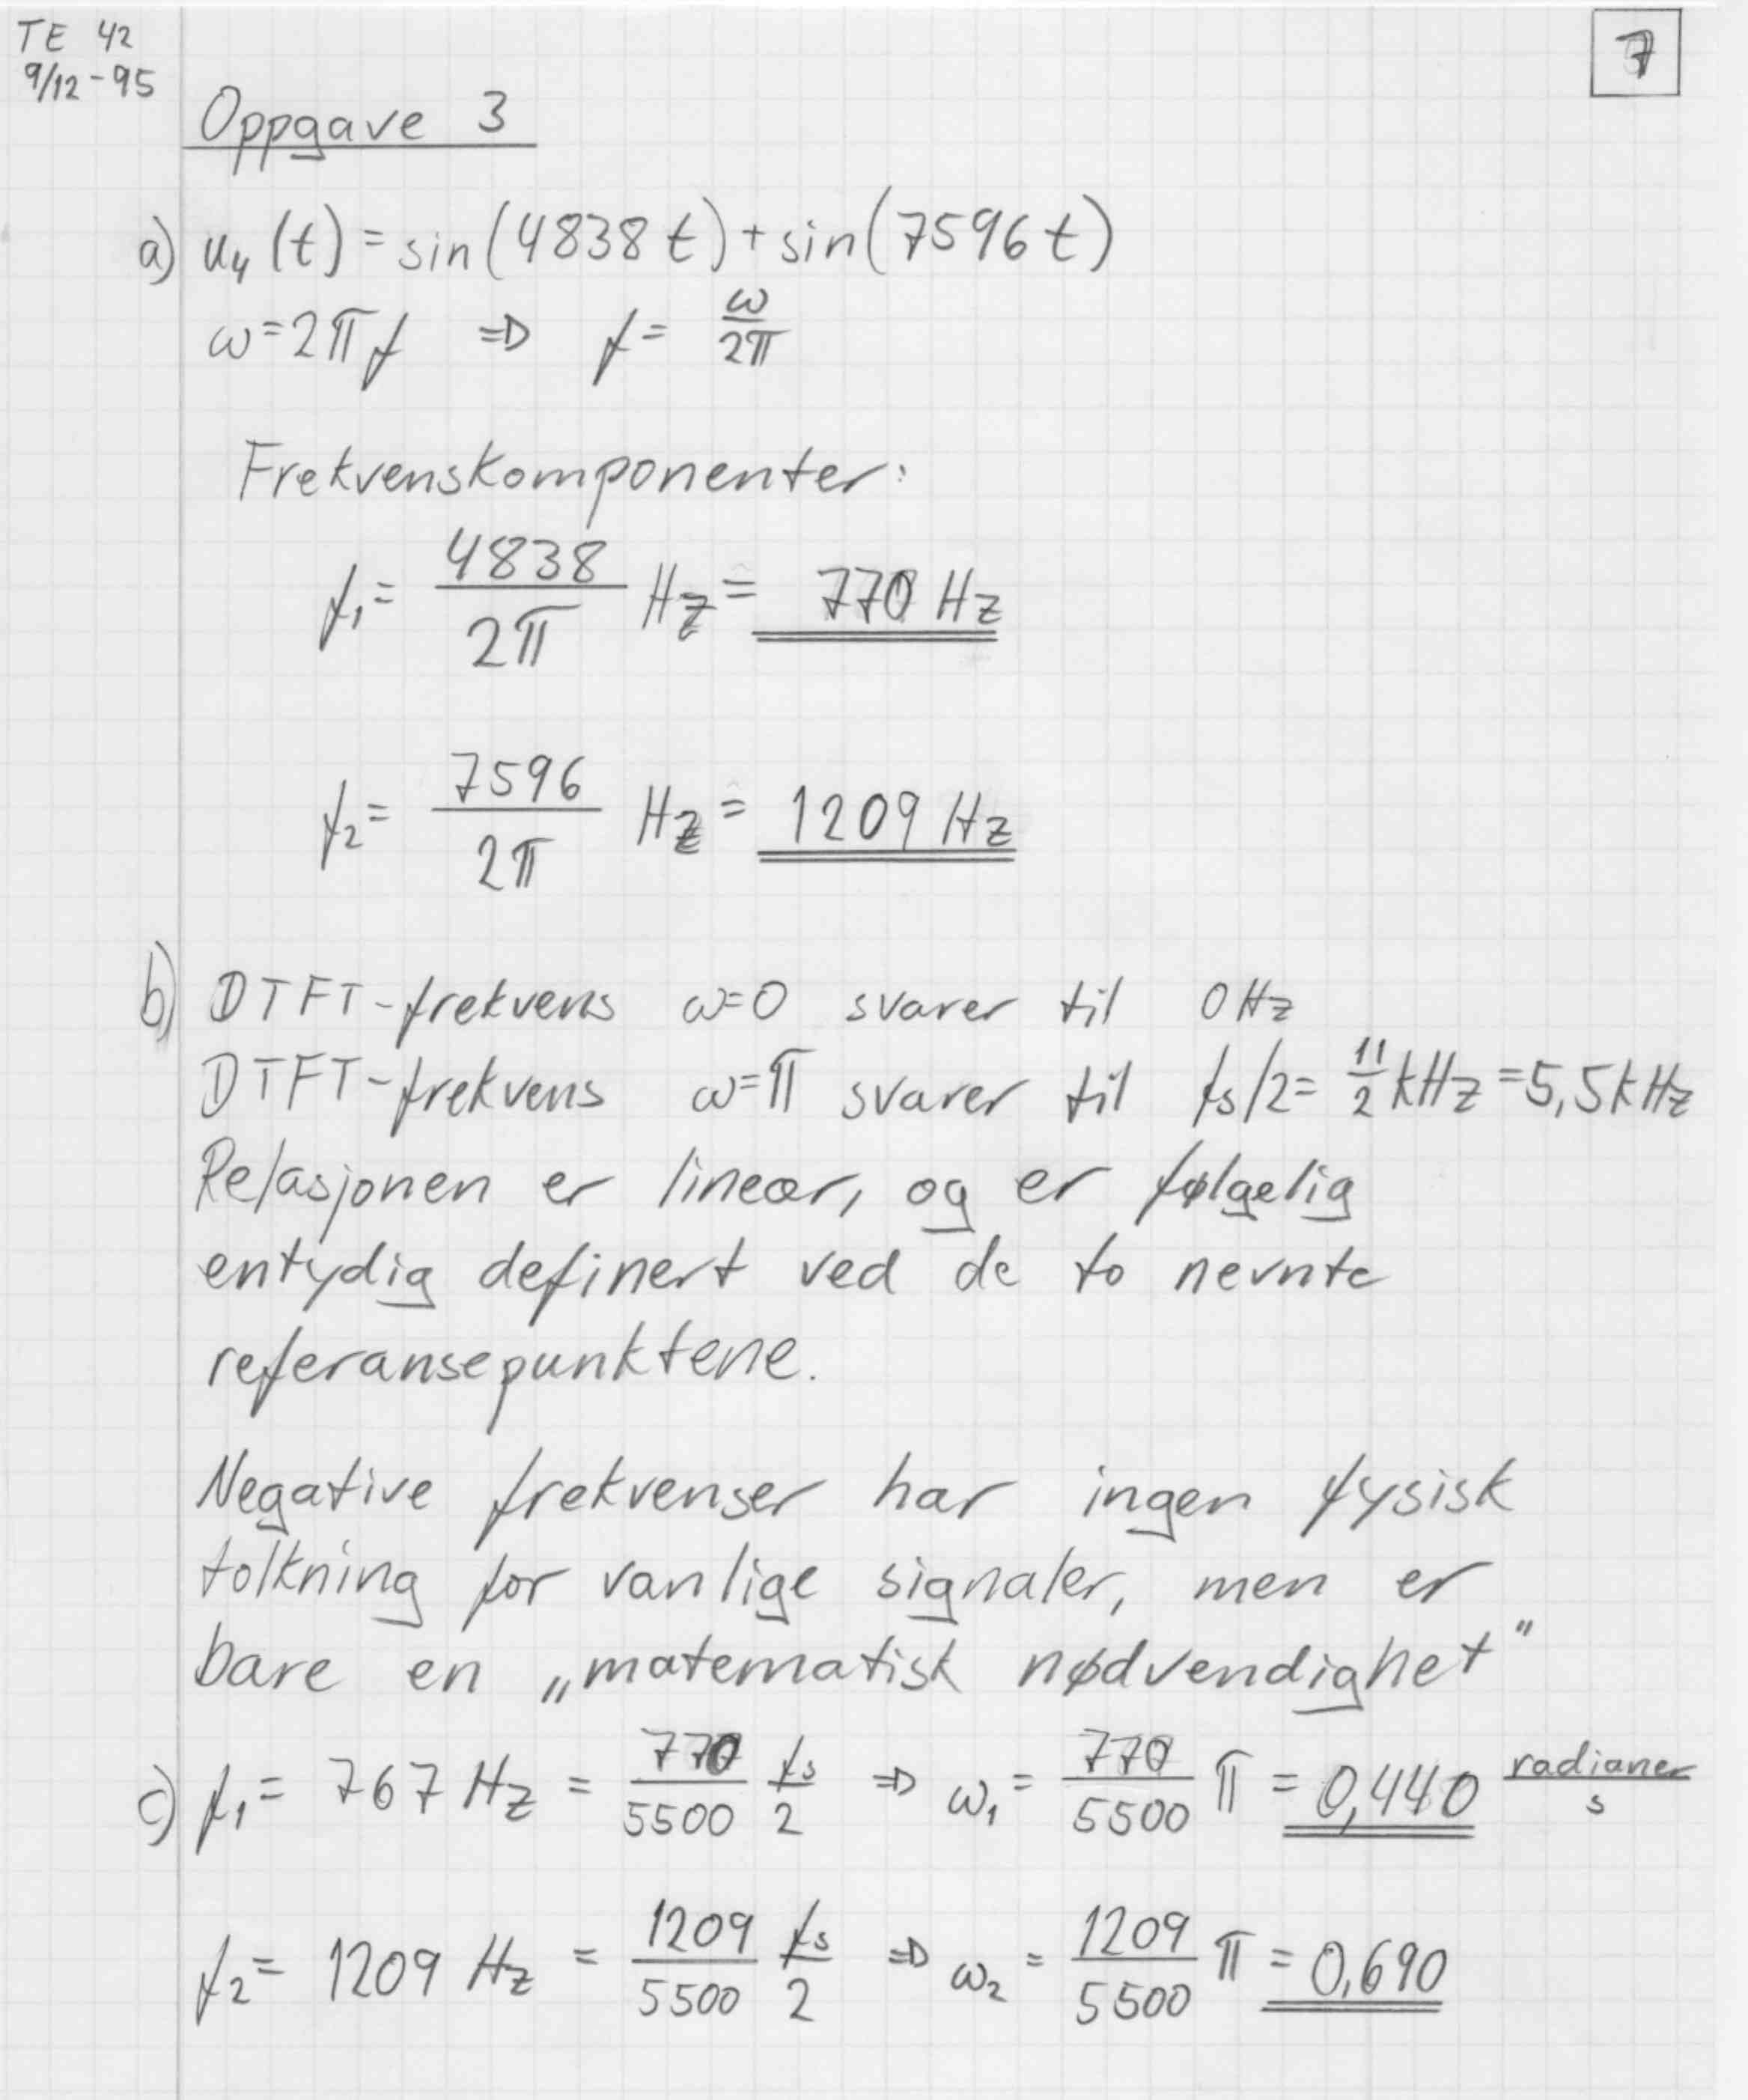 TE 42
9/12-95
7
Oppgave 3
a) u₄(t) = sin(4838t) + sin(7596t)
ω=2πf ⇒ f = ω/2π
Frekvenskomponenter:
f₁ = 4838/2π Hz = 770 Hz
f₂ = 7596/2π Hz = 1209 Hz
b) DTFT-frekvens ω=0 svarer til 0 Hz
DTFT-frekvens ω=π svarer til fs/2 = 11/2 kHz = 5,5 kHz
Relasjonen er lineær, og er følgelig
entydig definert ved de to nevnte
referansepunktene.
Negative frekvenser har ingen fysisk
tolkning for vanlige signaler, men er
bare en „matematisk nødvendighet"
c) f₁ = 767 Hz = 770/5500 fs/2 ⇒ ω₁ = 770/5500 π = 0,440 radianer/s
f₂ = 1209 Hz = 1209/5500 fs/2 ⇒ ω₂ = 1209/5500 π = 0,690